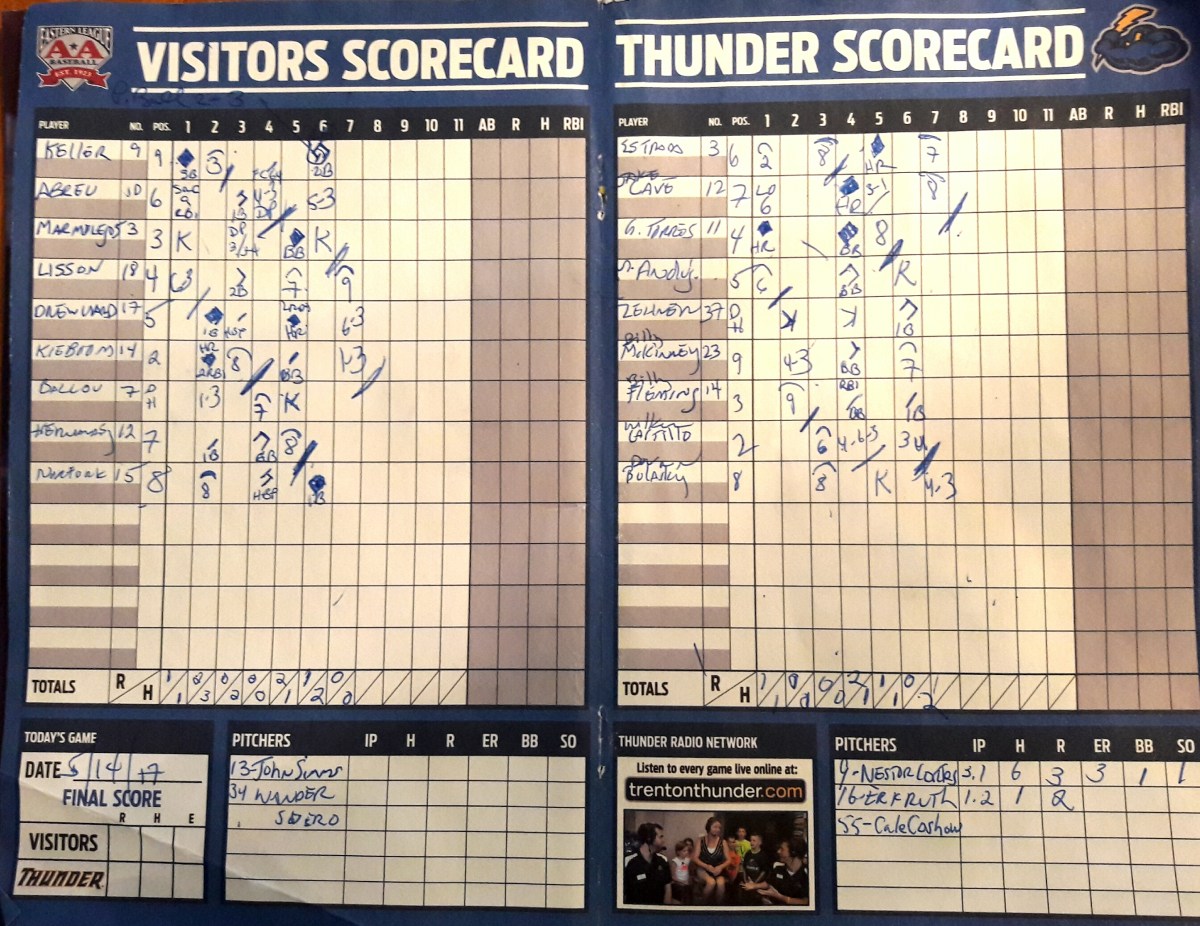 EASTERN LEAGUE
AA
BASEBALL
EST. 1923
VISITORS SCORECARD
PLAYER NO. POS. 1 2 3 4 5 6 7 8 9 10 11 AB R H RBI
KELLER 9 9 3B 3 FC 2B
ABREU 10 6 SAC 9 RBI 1B 4-3 DP 5-3
53 3 K DP BB K
LISSON 18 4 63 2B 7 9
17 5 1B HBP HR 6-3
KIEBOOM 14 2 HR 2RBI 8 BB 1-3
BALLOU 7 DH 1-3 7 K
12 7 1B BB 8
15 8 8 HBP
TOTALS R H 1/1 2/3 0/2 0/0 2/1 1/2 0/0
TODAY'S GAME
DATE 5/14/17
FINAL SCORE
R H E
VISITORS
THUNDER
PITCHERS IP H R ER BB SO
13-John Simms
34 WANDER
SUERO
THUNDER SCORECARD
PLAYER NO. POS. 1 2 3 4 5 6 7 8 9 10 11 AB R H RBI
ESTRADA 3 6 2 8 HR 7
JAKE
CAVE 12 7 6 HR 3-1 8
G. TORRES 11 4 HR BB 8
ANDUJ. 5 6 BB K
ZEHNER 37 DH K 1B
Billy
McKinney 23 9 43 BB 7
Billy
FLEMING 14 3 9 RBI BB 1B
CASTILLO 2 6 4-6-3 34
8 8 K 4-3
TOTALS R H 1/1 0/0 0/0 2/1 1/1 0/2
THUNDER RADIO NETWORK
Listen to every game live online at:
trentonthunder.com
PITCHERS IP H R ER BB SO
9-NESTOR CORTES 5.1 6 3 3 1 1
16-ERK RUTH 1.2 1 2
55-Cale Coshow